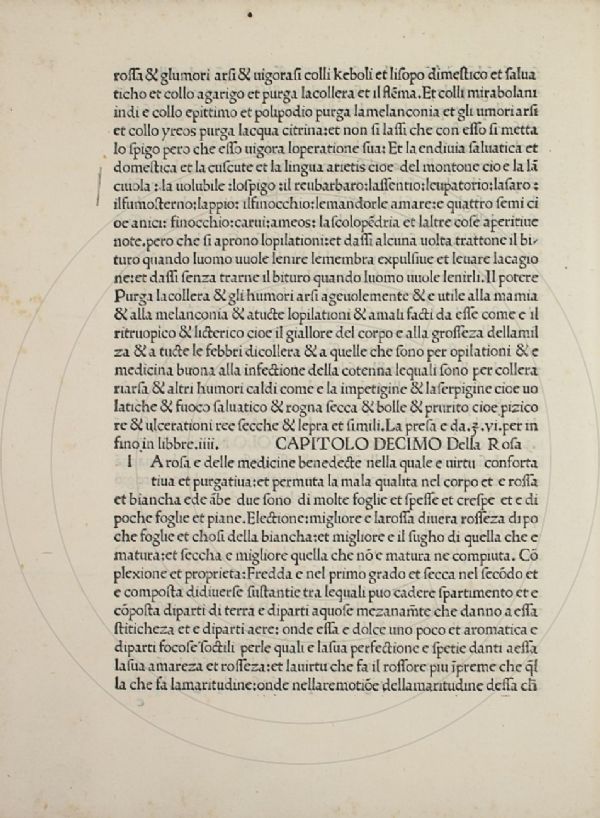 rossa & glumori arsi & uigorasi colli keboli et lisopo dimestico et salua
ticho et collo agarigo et purga lacollera et il flēma. Et colli mirabolani
indi e collo epittimo et polipodio purga lamelanconia et gli umori arsi
et collo yreos purga lacqua citrina: et non si lassi che con esso si metta
lo spigo pero che esso uigora loperatione sua: Et la endiuia saluatica et
domestica et la cuscute et la lingua arietis cioe del montone cio e la lā
ciuola : la uolubile : lospigo : il reubarbaro: lassentio: leupatorio: lasaro :
ilfumosterno: lappio: ilfinocchio: lemandorle amare: e quattro semi ci
oe anici: finocchio: carui: ameos: lascolopēdria et laltre cose aperitiue
note. pero che si aprono lopilationi: et dassi alcuna uolta trattone il bi-
turo quando luomo uuole lenire lemembra expulsiue et leuare lacagio
ne: et dassi senza trarne il bituro quando luomo uuole lenirli. Il potere
Purga lacollera & gli humori arsi ageuolemente & e utile alla mamia
& alla melanconia & atucte lopilationi & amali facti da esse come e il
ritruopico & licterico cioe il giallore del corpo e alla grosseza dellamil
za & a tucte le febbri dicollera & a quelle che sono per opilationi & e
medicina buona alla infectione della cotenna lequali sono per collera
riarsa & altri humori caldi come e la impetigine & laserpigine cioe uo
latiche & fuoco saluatico & rogna secca & bolle & prurito cioe pizico
re & ulcerationi ree secche & lepra et simili. La presa e da. ʒ. vi. per in
fino in libbre. iiii. CAPITOLO DECIMO Della Rosa
l A rosa e delle medicine benedecte nella quale e uirtu conforta
tiua et purgatiua: et permuta la mala qualita nel corpo et e rossa
et biancha ede ābe due sono di molte foglie et spesse et crespe et e di
poche foglie et piane. Electione: migliore e larossa diuera rosseza di po
che foglie et chosi della biancha: et migliore e il sugho di quella che e
matura: et seccha e migliore quella che nō e matura ne compiuta. Cō
plexione et proprieta: Fredda e nel primo grado et secca nel secōdo et
e composta didiuerse sustantie tra lequali puo cadere spartimento et e
cōposta diparti di terra e diparti aquose mezanamēte che danno a essa
stiticheza et e diparti aere: onde essa e dolce uno poco et aromatica e
diparti focose soctili perle quali e lasua perfectione e spetie danti aessa
lasua amareza et rosseza: et lauirtu che fa il rossore piu īpreme che q̄l
la che fa lamaritudine: onde nellaremotiōe dellamaritudine dessa ch̄